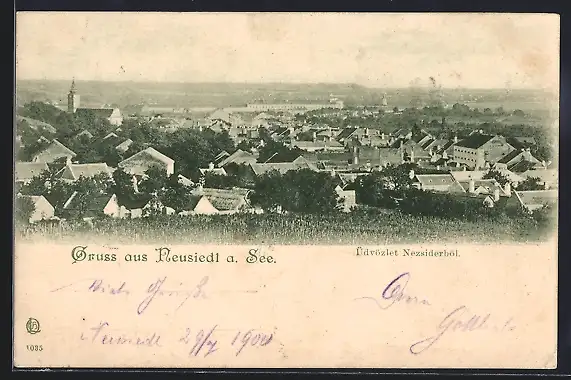 Gruss aus Neusiedl a. See.
Üdvözlet Nezsiderből.
Viele Grüße
Neusiedl 29/7 1900
1035